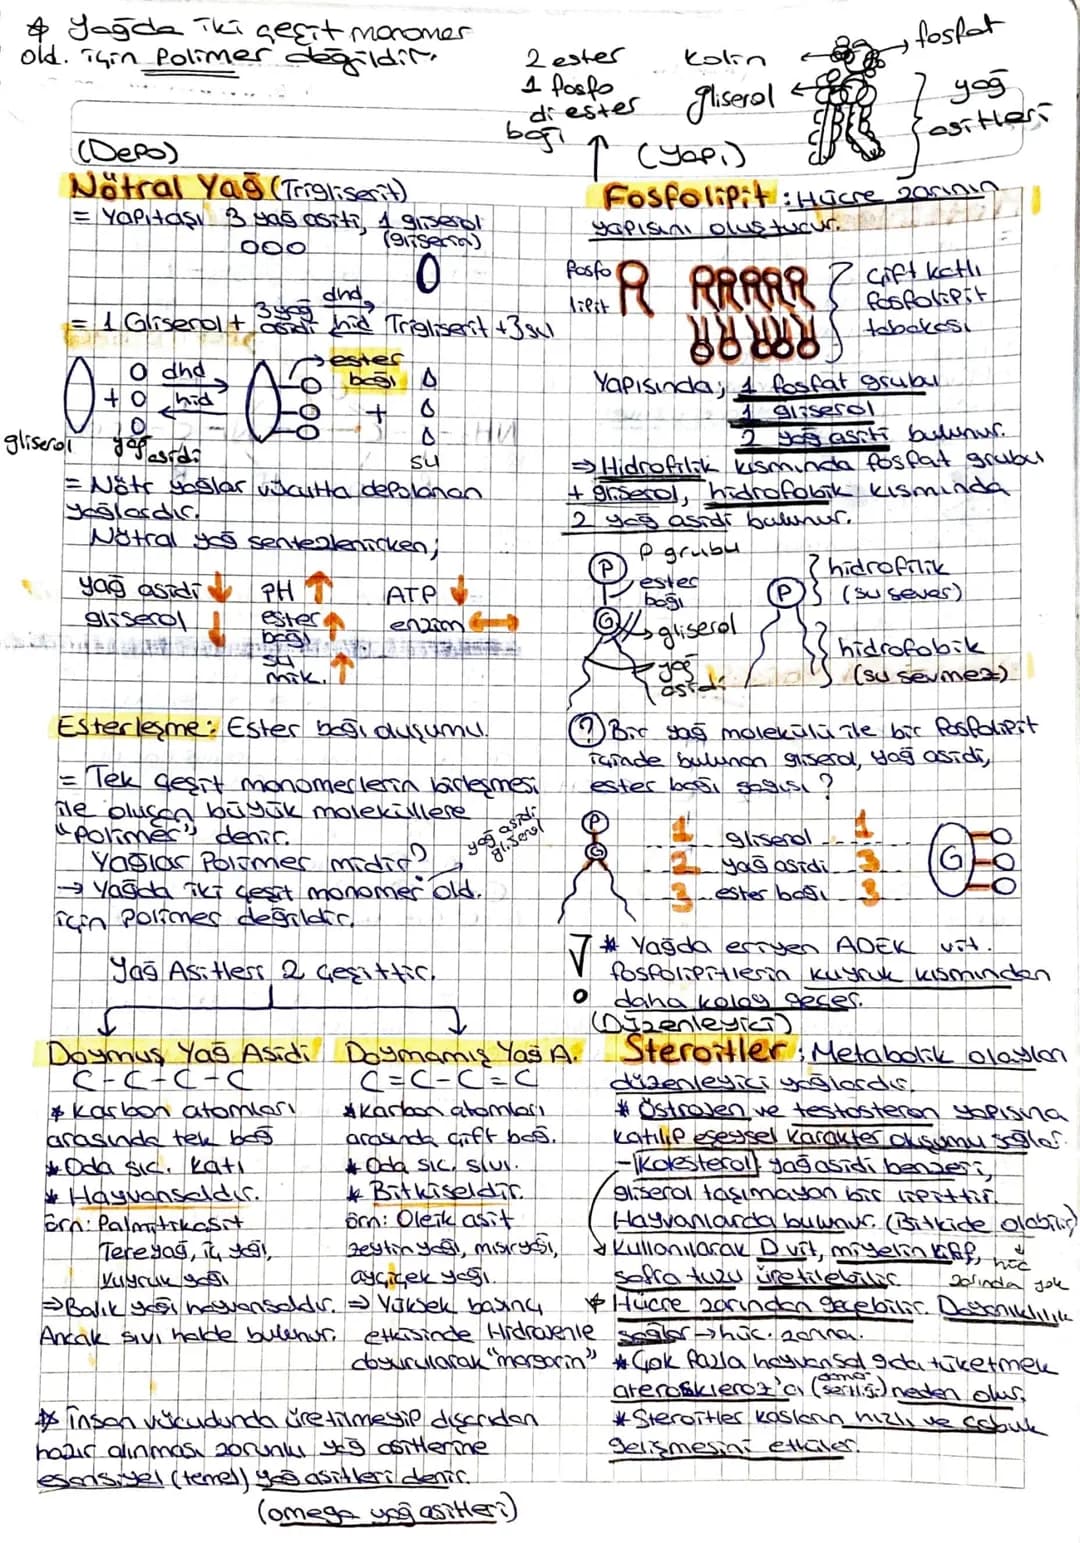 * Yağda iki çeşit monomer
old. için Polimer değildir.
2 ester
1 fosfo
diester
bağı
kolin
gliserol
fosfat
yağ
asitleri
(Depo)
Nötral Yağ (Trigliserit)
= Yapıtaşı 3 yağ asiti, 1 gliserol
(gliserin)
= 1 Gliserol + 3 yağ asidi dhd hid Trigliserit + 3 su
dhd
hid
ester
bağı
+
+
su
gliserol
yağ asidi
= Nötr yağlar vücutta depolanan
yağlardır.
Nötral yağ sentezlenirken;
yağ asidi ↓ PH ↑ ATP ↓
gliserol ↓ ester bağı ↑ enzim ↔
su mik. ↑
Esterleşme: Ester bağı oluşumu.
= Tek çeşit monomerlerin birleşmesi
ile oluşan büyük moleküllere
"polimer" denir.
Yağlar Polimer midir?
yağ asidi
gliserol
→ Yağda iki çeşit monomer old.
için polimer değildir.
Yağ Asitleri 2 çeşittir.
Doymuş Yağ Asidi
C-C-C-C
* Karbon atomları
arasında tek bağ
* Oda sıc. katı
* Hayvansaldır.
örn: Palmitikasit
Tereyağ, iç yağı,
kuyruk yağı
⇒ Balık yağı hayvansaldır.
Ancak sıvı halde bulunur.
Doymamış Yağ A.
C=C-C=C
* Karbon atomları
arasında çift bağ.
* Oda sıc. sıvı.
* Bitkiseldir.
örn: Oleik asit
zeytin yağı, mısıryağı,
ayçiçek yağı.
⇒ Yüksek basınç
etkisinde Hidrojenle
doyurularak "margarin"
* İnsan vücudunda üretilmeyip dışarıdan
hazır alınması zorunlu yağ asitlerine
esansiyel (temel) yağ asitleri denir.
(omega yağ asitleri)
(Yapı)
Fosfolipit : Hücre zarının
yapısını oluşturur.
fosfo
lipit
Çift katlı
fosfolipit
tabakası
Yapısında; 1 fosfat grubu
1 gliserol
2 yağ asiti bulunur.
⇒ Hidrofilik kısmında fosfat grubu
+ gliserol, hidrofobik kısmında
2 yağ asidi bulunur.
P
P grubu
ester
bağı
G
gliserol
yağ
asidi
P
hidrofilik
(su sever)
hidrofobik
(su sevmez)
? Bir yağ molekülü ile bir fosfolipit
içinde bulunan gliserol, yağ asidi,
ester bağı sayısı?
P
G
1 gliserol 1
2 yağ asidi 3
3 ester bağı 3
G
* Yağda eriyen ADEK vit.
fosfolipitlerin kuyruk kısmından
daha kolay geçer.
(Düzenleyici)
Steroitler : Metabolik olayları
düzenleyici yağlardır.
* Östrojen ve testosteron yapısına
katılıp eşeysel karakter oluşumu sağlar.
- Kolesterol yağ asidi benzeri,
gliserol taşımayan bir lipittir.
Hayvanlarda bulunur. (Bitkide olabilir)
hüc
zarında yok
Kullanılarak D vit, miyelin kılıf,
safra tuzu üretilebilir.
* Hücre zarından geçebilir. Dayanıklılık
sağlar → hüc. zarına.
* Çok fazla hayvansal gıda tüketmek
ateroskleroz'a (damar sertliği) neden olur.
* Steroitler kasların hızlı ve çabuk
gelişmesini etkiler.